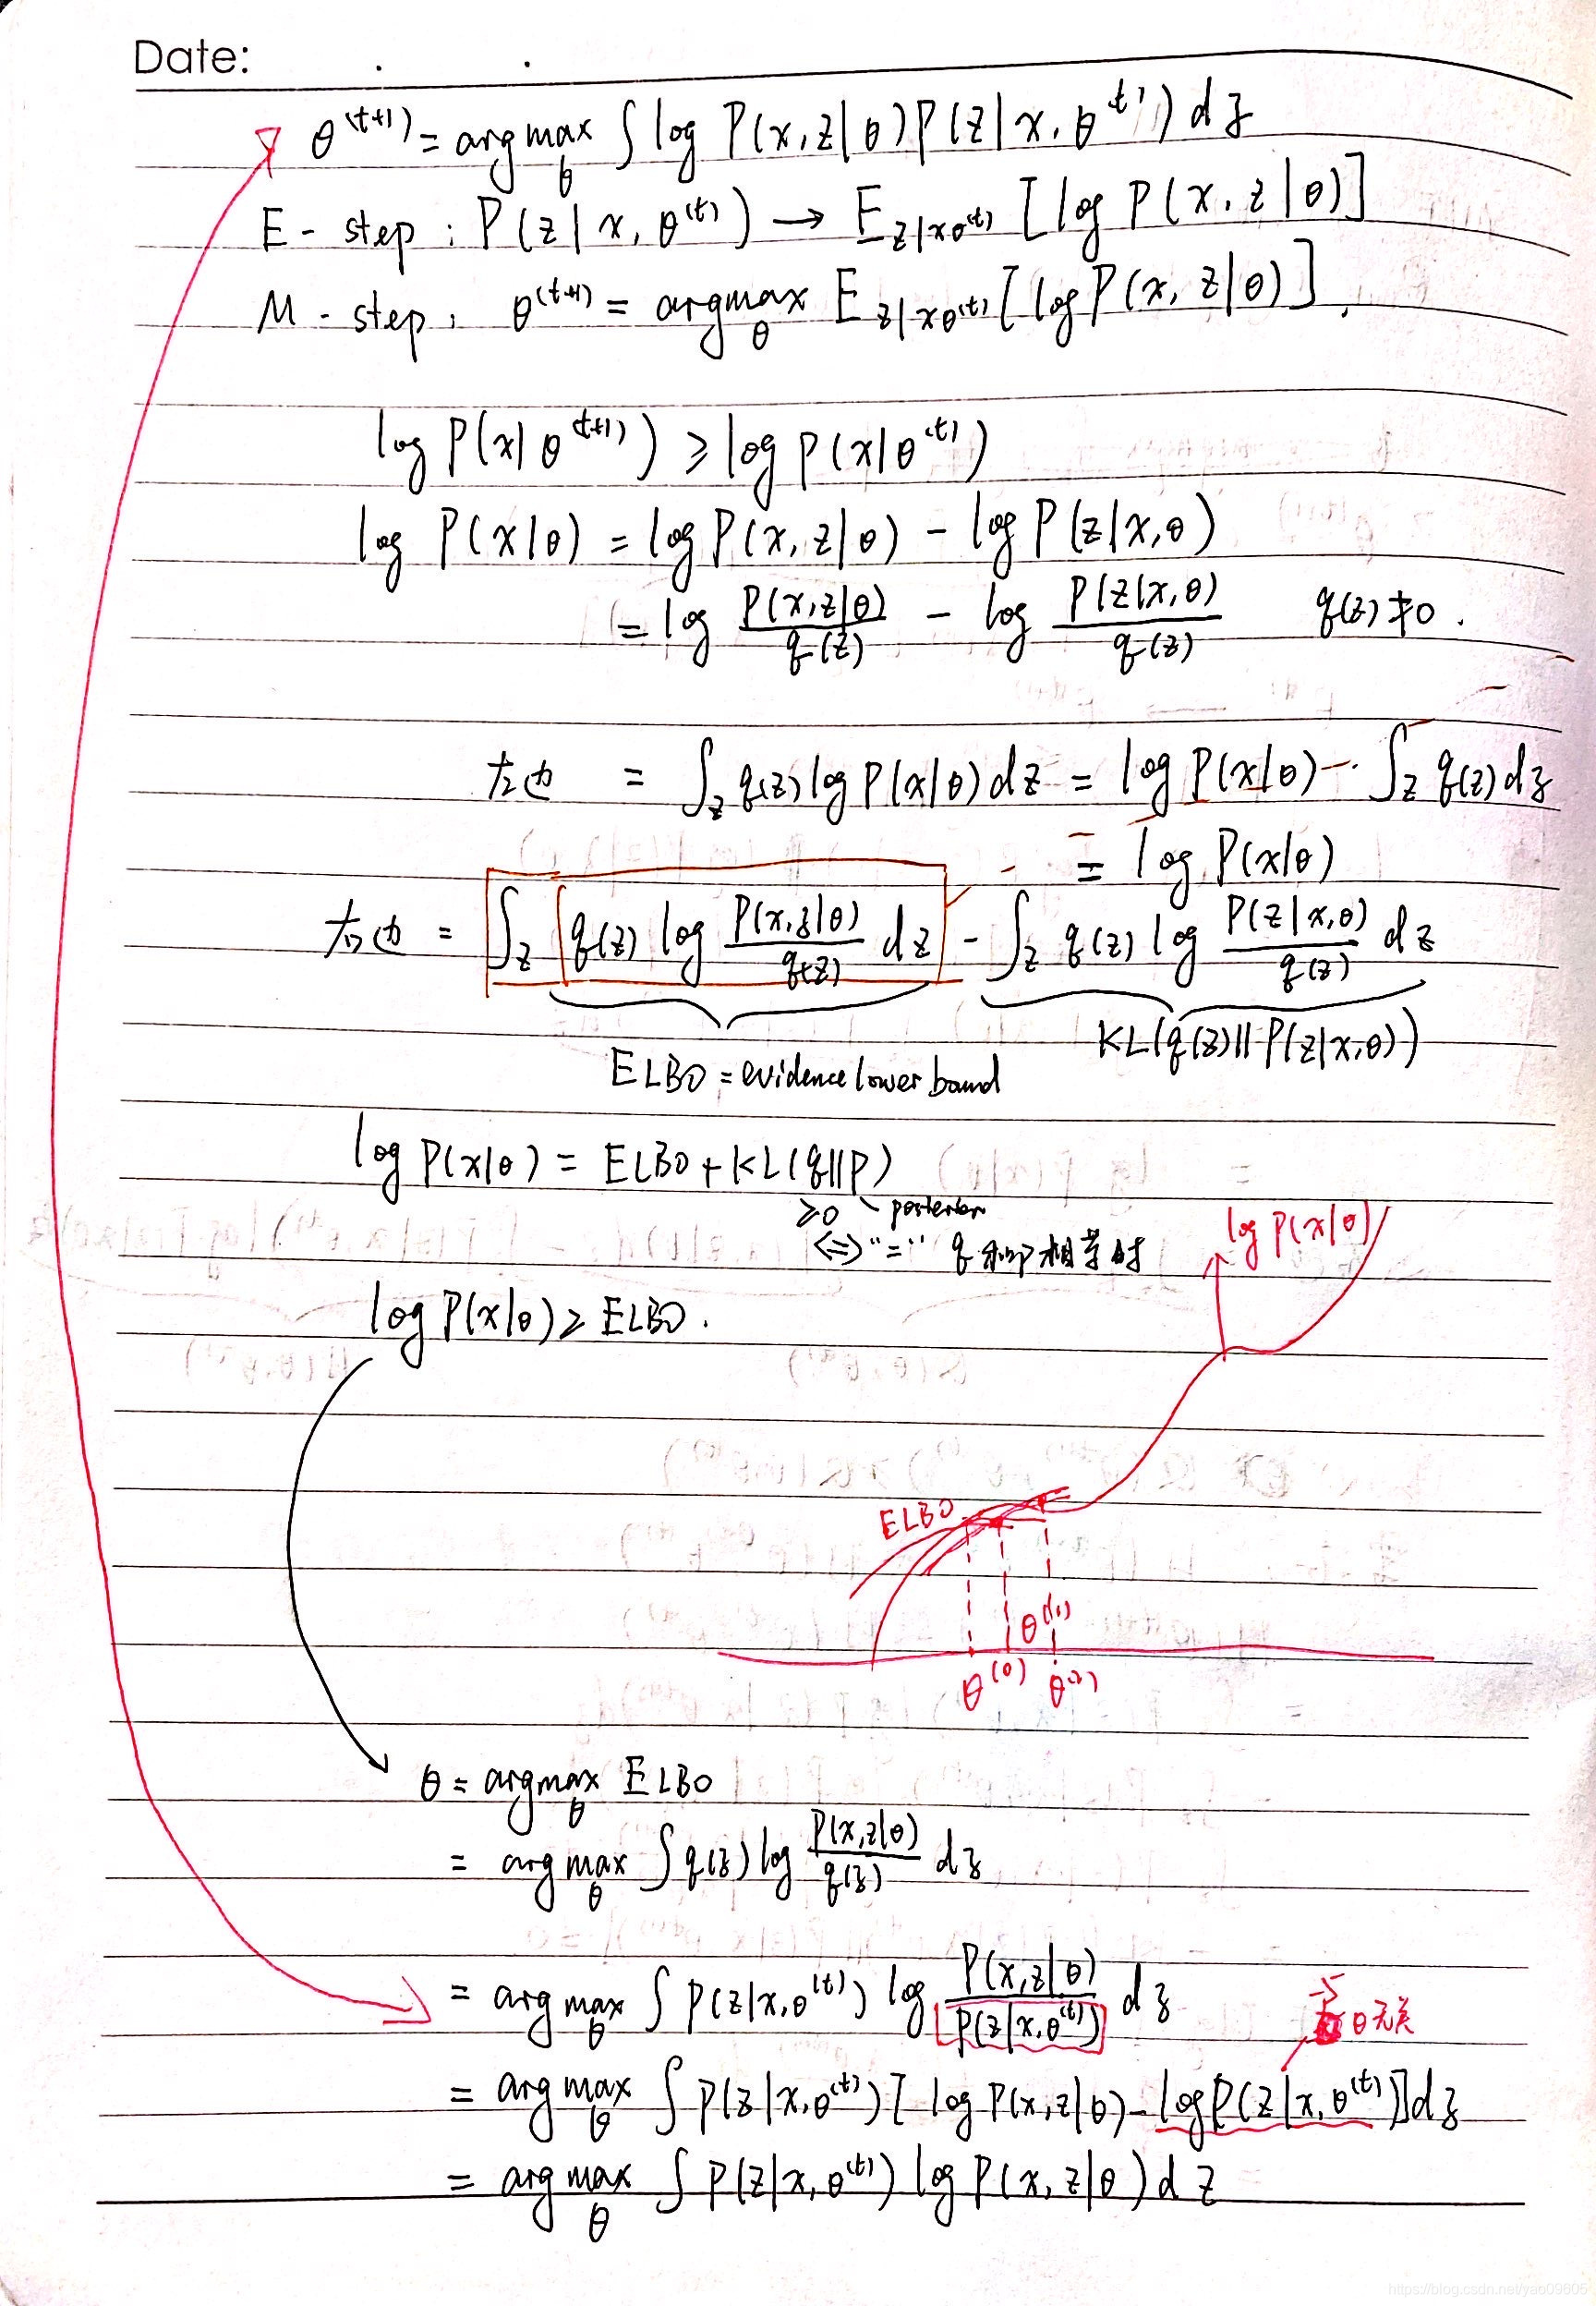 Date:
θ^(t+1) = argmax_θ ∫ log P(x,z|θ) P(z|x,θ^(t)) dz
E-step: P(z|x,θ^(t)) → E_z|xθ^(t) [log P(x,z|θ)]
M-step: θ^(t+1) = argmax_θ E_z|xθ^(t) [log P(x,z|θ)].
log P(x|θ^(t+1)) ≥ log P(x|θ^(t))
log P(x|θ) = log P(x,z|θ) - log P(z|x,θ)
= log P(x,z|θ)/q(z) - log P(z|x,θ)/q(z) q(z)≠0.
左边 = ∫_z q(z) log P(x|θ) dz = log P(x|θ) · ∫_z q(z) dz
= log P(x|θ)
右边 = ∫_z q(z) log P(x,z|θ)/q(z) dz - ∫_z q(z) log P(z|x,θ)/q(z) dz
ELBO = evidence lower bound KL(q(z)||P(z|x,θ))
log P(x|θ) = ELBO + KL(q||p)
≥0 posterior
⇔ "=" q和p相等时
log P(x|θ)
log P(x|θ) ≥ ELBO.
ELBO
θ^(1)
θ^(0) θ^(2)
θ = argmax_θ ELBO
= argmax_θ ∫ q(z) log P(x,z|θ)/q(z) dz
= argmax_θ ∫ P(z|x,θ^(t)) log P(x,z|θ)/P(z|x,θ^(t)) dz
与θ无关
= argmax_θ ∫ P(z|x,θ^(t)) [log P(x,z|θ) - log P(z|x,θ^(t))] dz
= argmax_θ ∫ P(z|x,θ^(t)) log P(x,z|θ) dz
https://blog.csdn.net/yao09605